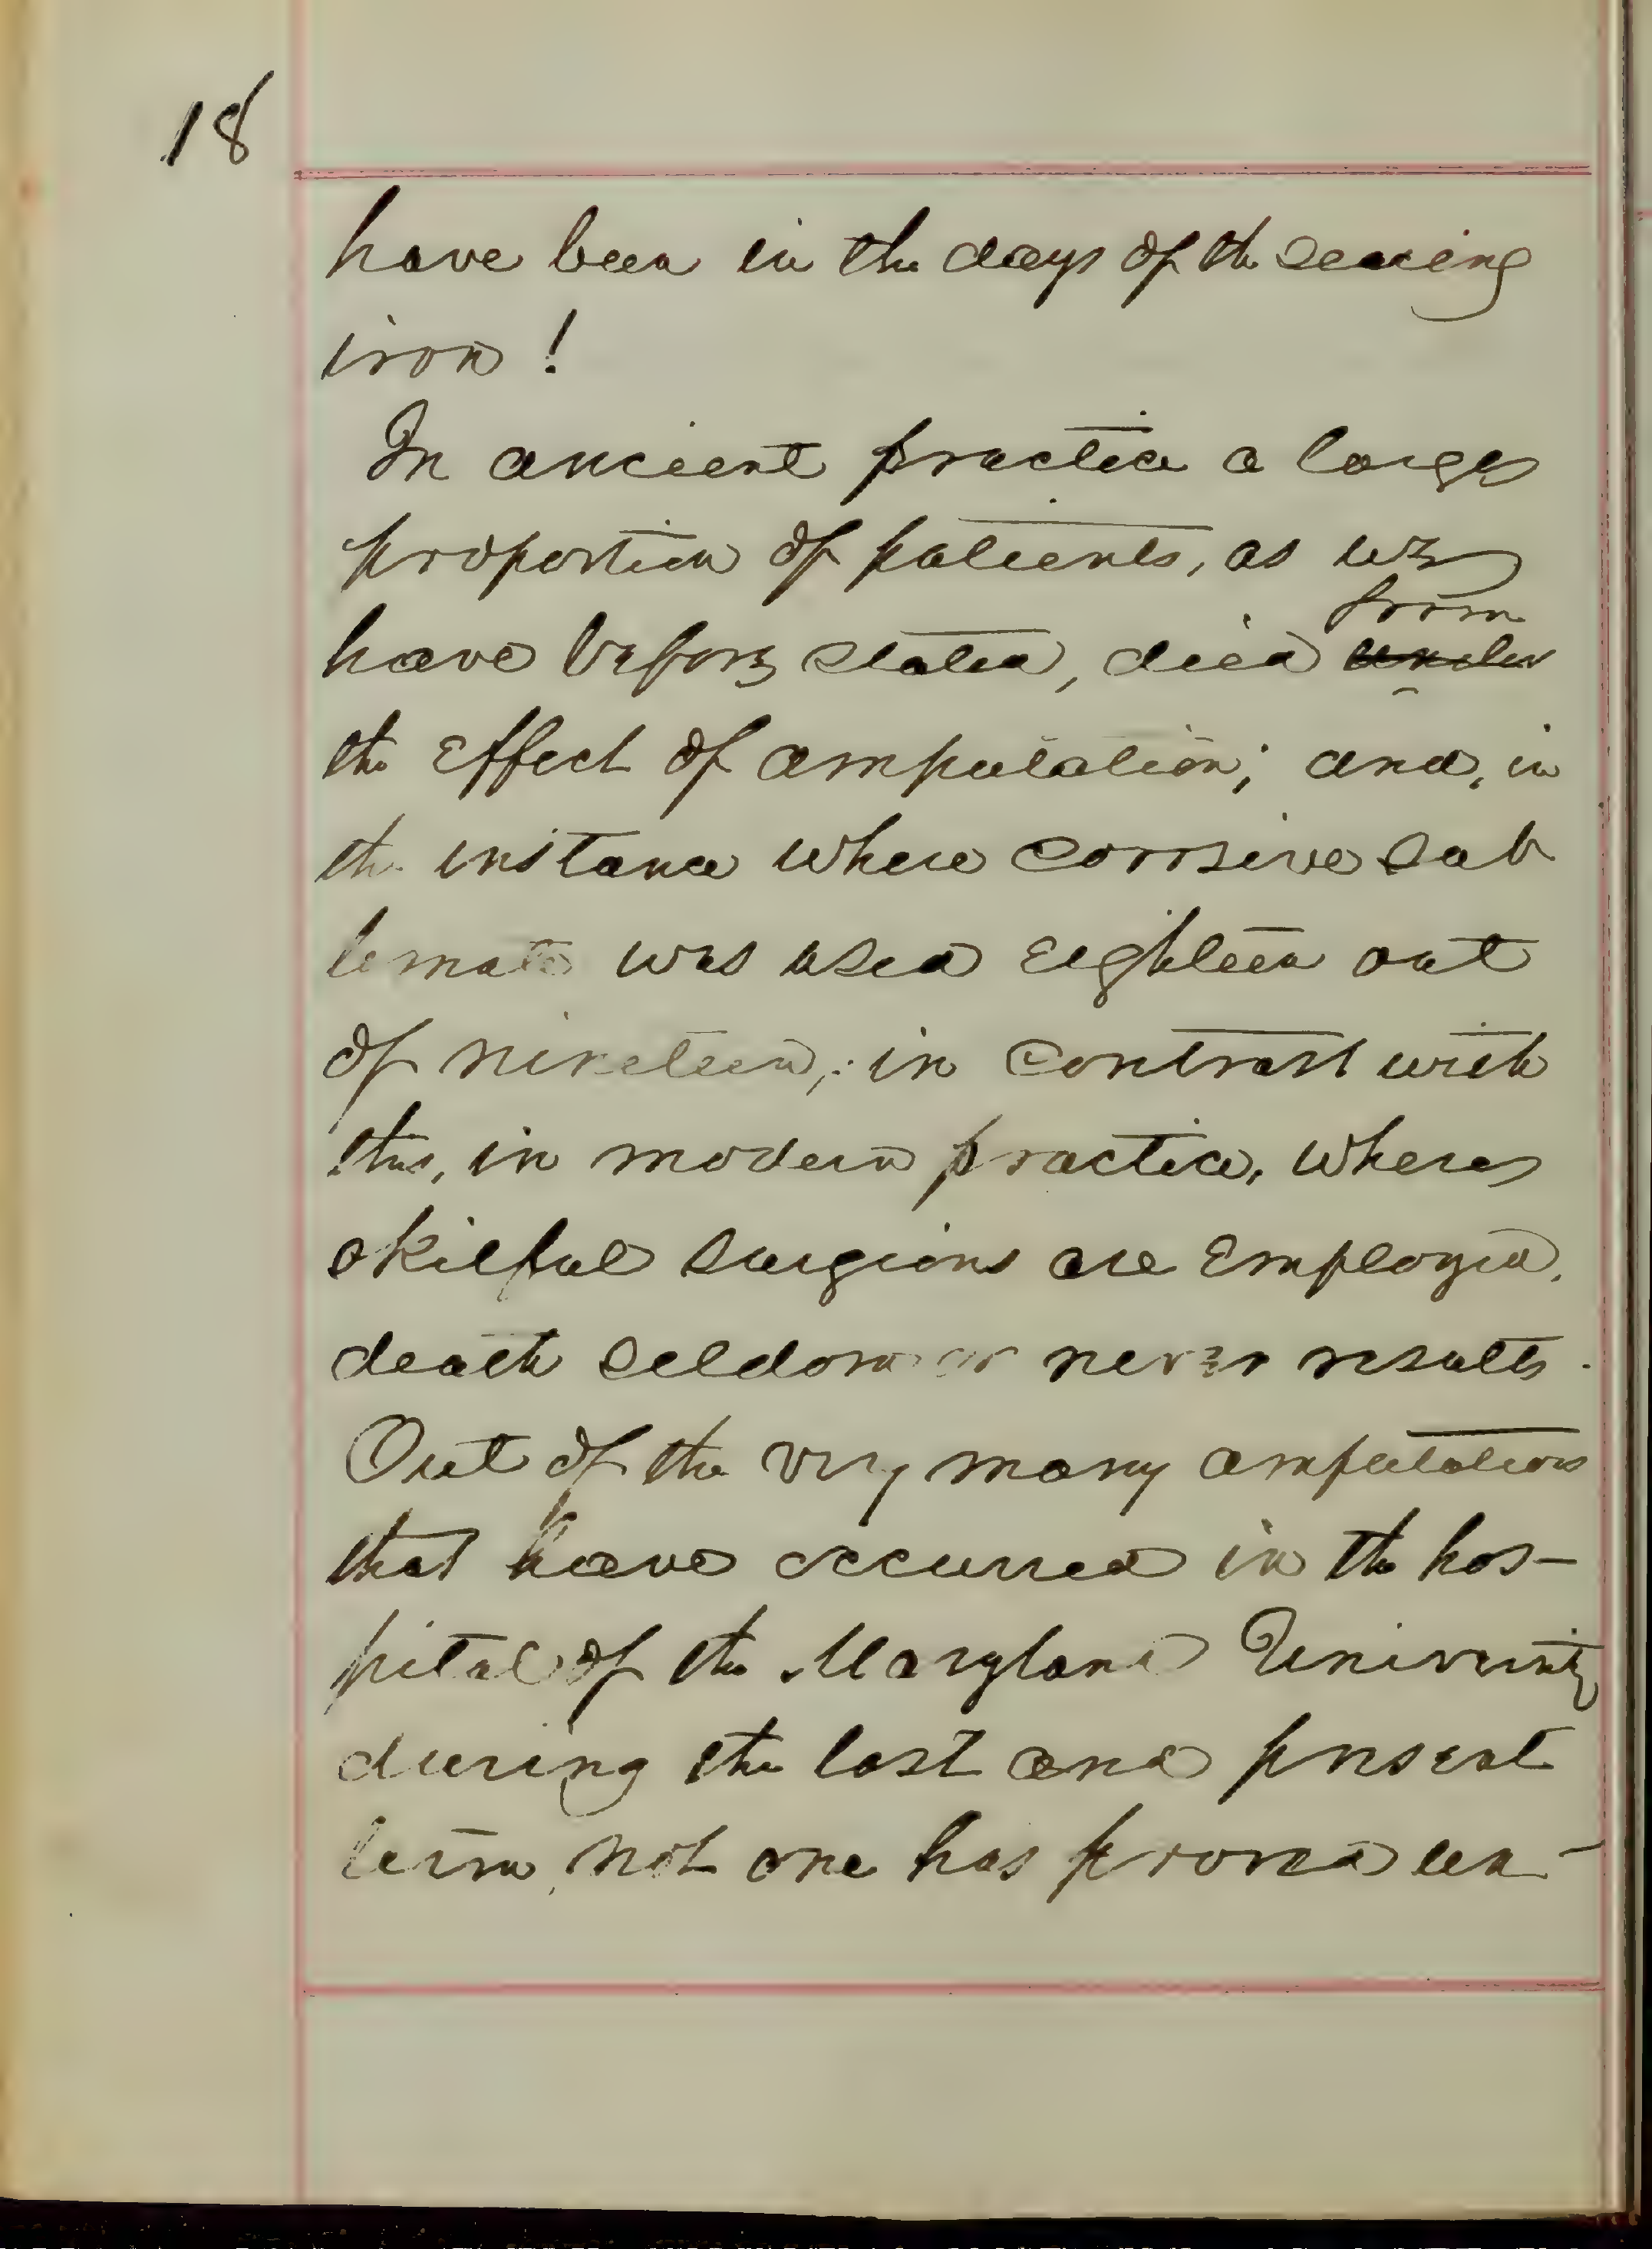 18
have been in the days of the searing
iron!
In ancient practice a large
proportion of patients, as we
from
have before stated, died under
the effect of amputation; and, in
the instance where corrosive sub
lemate was used eighteen out
of nineteen; in contrast with
this, in modern practice, where
skilful surgions are employed,
death seldom or never results.
Out of the very many amputations
that have occurred in the hos-
pital of the Maryland University
during the last and present
term, not one has proved un-